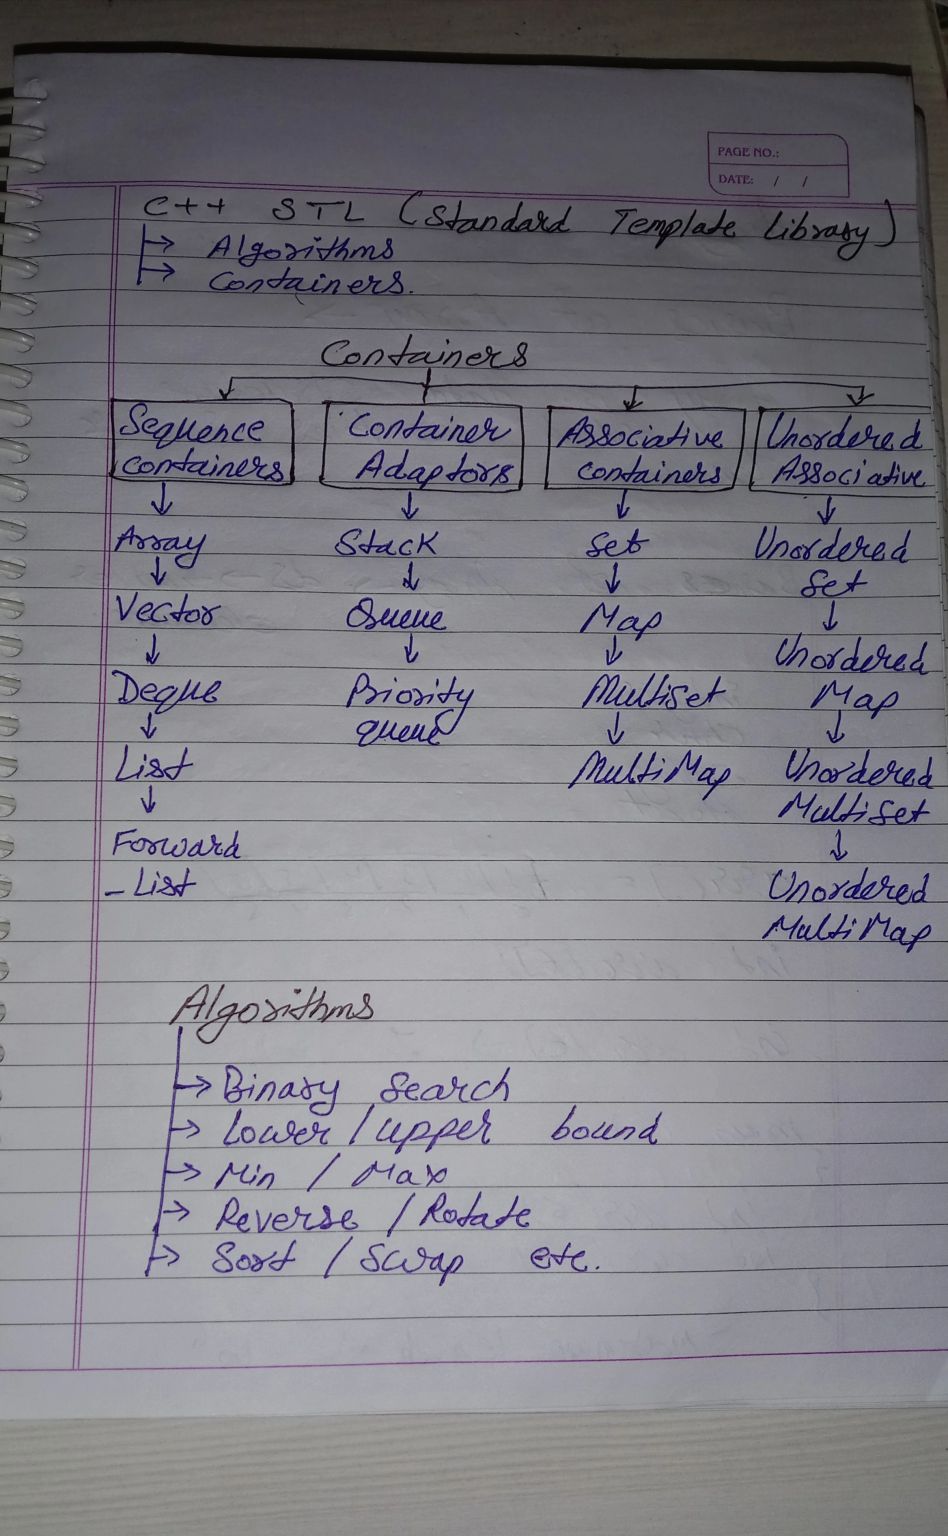 PAGE NO.:
DATE: / /
C++ STL (Standard Template Library)
Algorithms
Containers.
Containers
Sequence
containers
Array
Vector
Deque
List
Forward
- List
Container
Adaptors
Stack
Queue
Priority
queue
Associative
containers
Set
Map
Multiset
MultiMap
Unordered
Associative
Unordered
Set
Unordered
Map
Unordered
MultiSet
Unordered
MultiMap
Algorithms
Binary Search
Lower / upper bound
Min / Max
Reverse / Rotate
Sort / Swap etc.